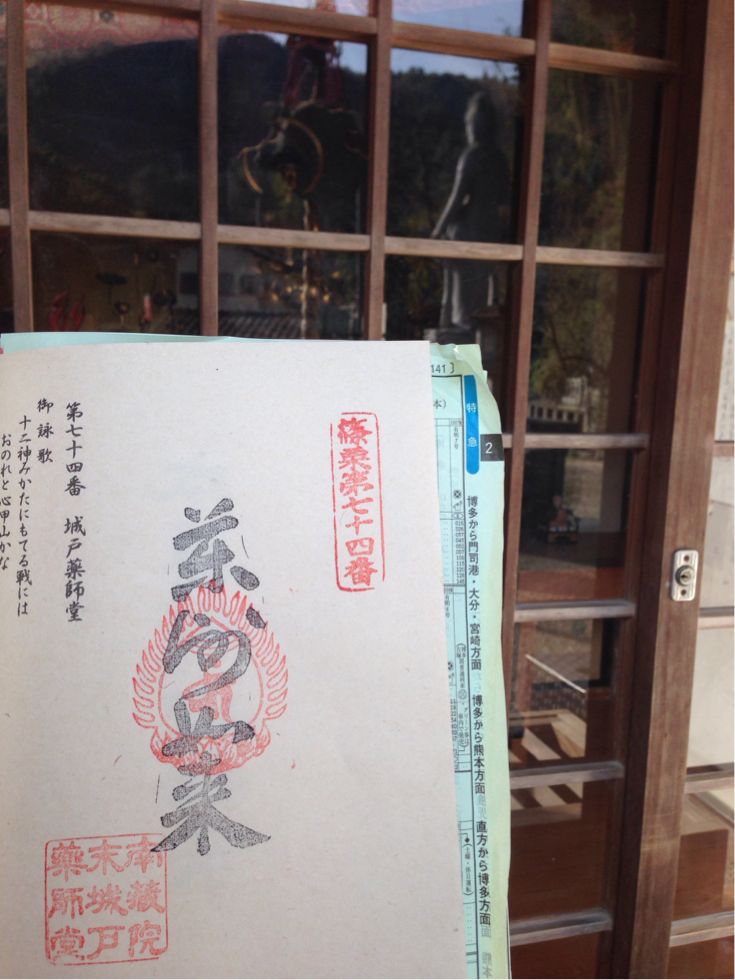 篠栗第七十四番
薬師如来
第七十四番 城戸薬師堂
御詠歌
十二神みかたにもてる戦には
おのれと心甲山かな
南蔵院
末城戸
薬師堂
141〕
本）
特急
2
博多から門司港・大分・宮崎方面
博多から熊本方面
直方から博多方面